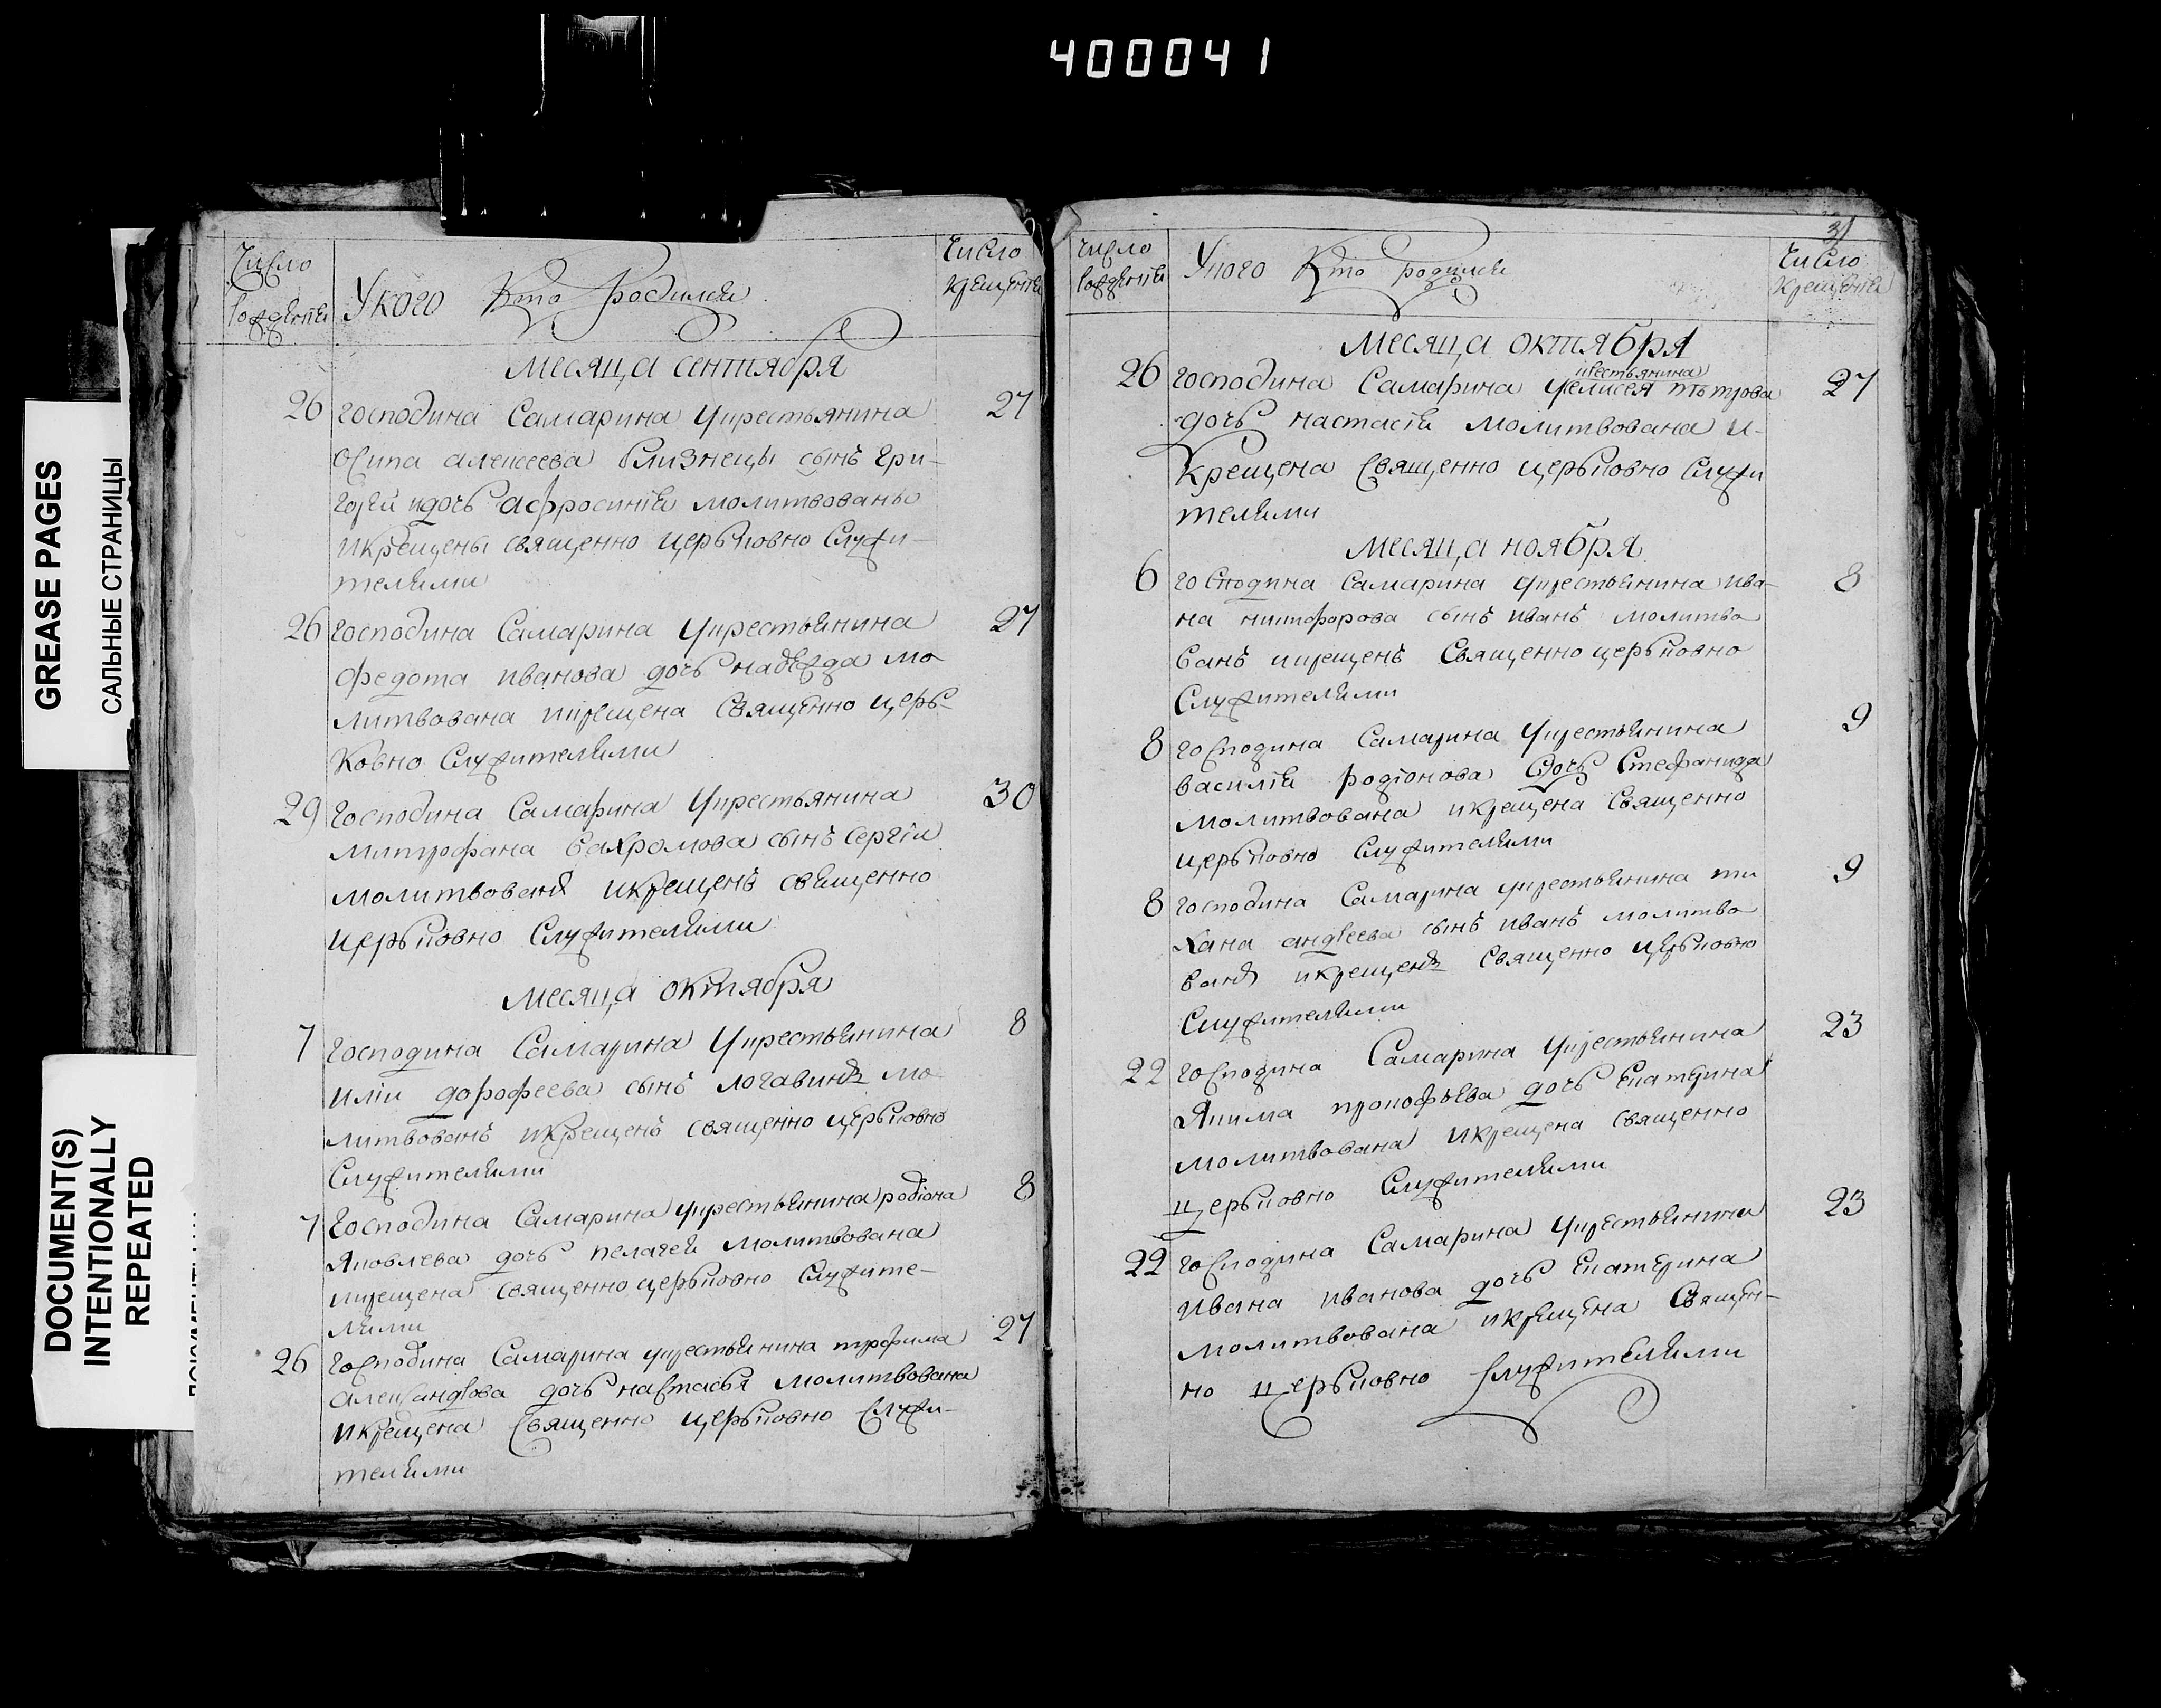 400041
GREASE PAGES
САЛЬНЫЕ СТРАНИЦЫ
DOCUMENT(S)
INTENTIONALLY
REPEATED
Число
У кого Кто родился
Число
крещенія
Месяца сентября
26 господина Самарина у крестьянина 27
осипа алексеева близнецы сынъ гри-
горей и дочь афросинія молитвованы
и крещены священно церьковно служи-
телями
26 господина Самарина у крестьянина 27
федота иванова дочь надежда мо
литвована и крещена священно церь-
ковно служителями
29 господина Самарина у крестьянина 30
митрофана вахромова сынъ сергіи
молитвованъ и крещенъ священно
церьковно служителями
Месяца октября
7 господина Самарина у крестьянина 8
иліи дорофеева сынъ логавинъ мо
литвованъ и крещенъ священно церьковно
служителями
7 господина Самарина у крестьянина родіона 8
яковлева дочь пелагея молитвована
и крещена священно церьковно служите-
лями
26 господина Самарина у крестьянина трофима 27
александрова дочь настасья молитвована
и крещена священно церьковно служи-
телями
31
Число
У кого Кто родился
Число
крещенія
Месяца октября
крестьянина
26 господина Самарина у елисея петрова 27
дочь настасія молитвована и-
крещена священно церьковно служи
телями
Месяца ноября
6 господина Самарина у крестьянина ива- 8
на никифорова сынъ иванъ молитво
ванъ и крещенъ священно церьковно
служителями
8 господина Самарина у крестьянина 9
василія родіонова дочь Стефанида
молитвована и крещена священно
церьковно служителями
8 господина Самарина у крестьянина ти 9
хана андреева сынъ иванъ молитво
ванъ и крещенъ священно церьковно
служителями
22 господина Самарина у крестьянина 23
якима прокофьева дочь екатерина
молитвована и крещена священно
церьковно служителями
22 господина Самарина у крестьянина 23
ивана иванова дочь екатерина
молитвована и крещена священ-
но церьковно служителями